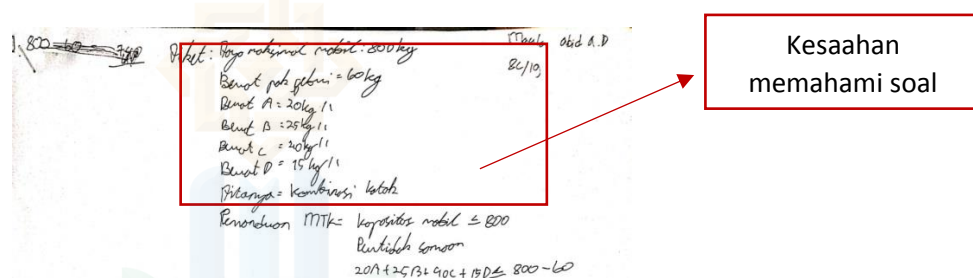 1. 800-60 = 740
Diket: Daya maksimal mobil: 800kg
Berat pak = 60kg
Berat A = 20kg/1
Berat B = 25kg/1
Berat C = 40kg/1
Berat D = 15kg/1
Ditanya = Kombinasi kotak
Pemodelan MTK = kapasitas mobil ≤ 800
20A+25B+40C+15D ≤ 800-60
A.D
8C/19
Kesaahan
memahami soal